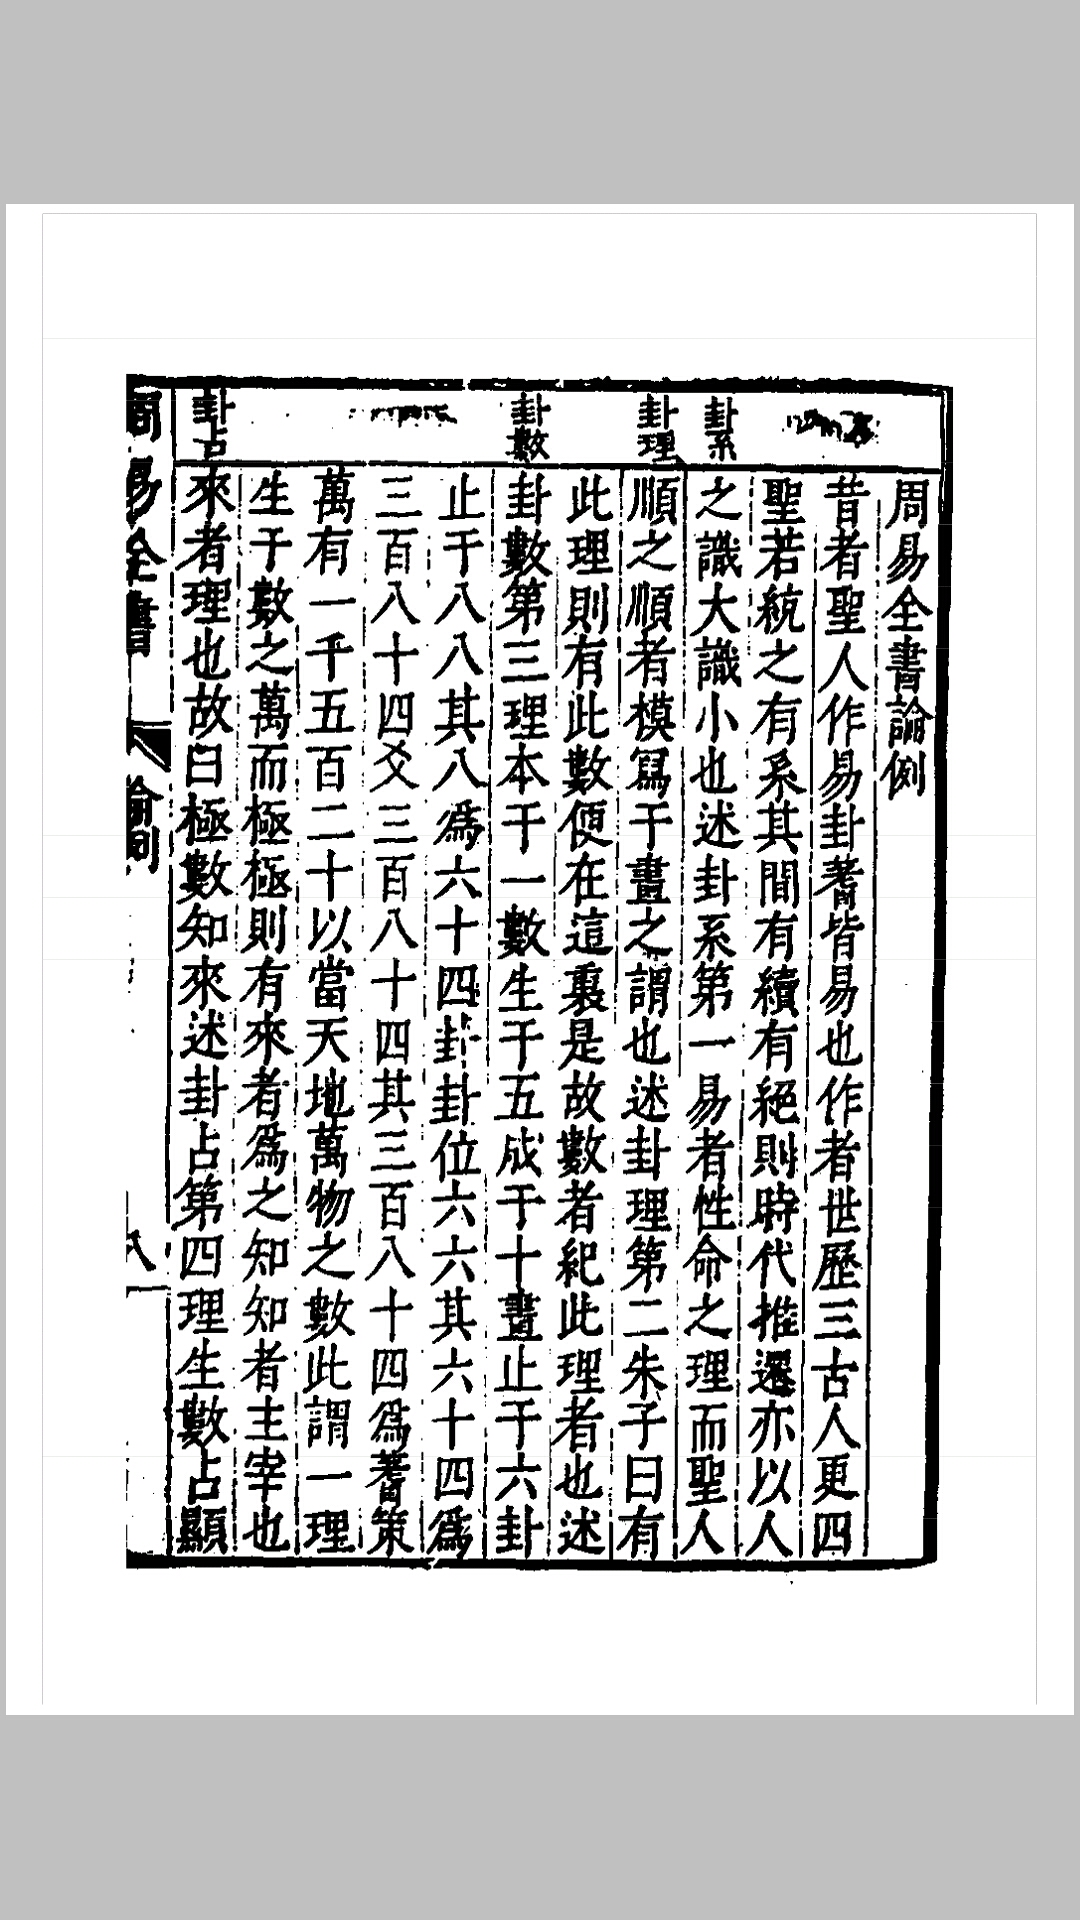 周易全書論例
昔者聖人作易卦蓍皆易也作者世歷三古人更四
聖若統之有系其間有續有絕則時代推遷亦以人
卦系
之識大識小也述卦系第一易者性命之理而聖人
卦理
順之順者模寫于畫之謂也述卦理第二朱子曰有
此理則有此數便在這裏是故數者紀此理者也述
卦數
卦數第三理本于一數生于五成于十畫止于六卦
止于八八其八爲六十四卦卦位六六其六十四爲
三百八十四爻三百八十四其三百八十四爲蓍策
萬有一千五百二十以當天地萬物之數此謂一理
生于數之萬而極極則有來者爲之知知者主宰也
卦占
來者理也故曰極數知來述卦占第四理生數占顯
周易全書
論例
八